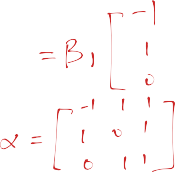 = β₁ [-1
1
0]
α = [-1 1 1
1 0 1
0 1 1]